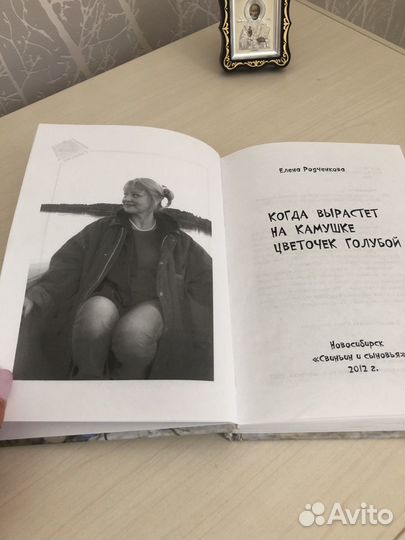 Елена Родченкова
КОГДА ВЫРАСТЕТ
НА КАМУШКЕ
ЦВЕТОЧЕК ГОЛУБОЙ
Новосибирск
«Свиньин и сыновья»
2012 г.
Avito